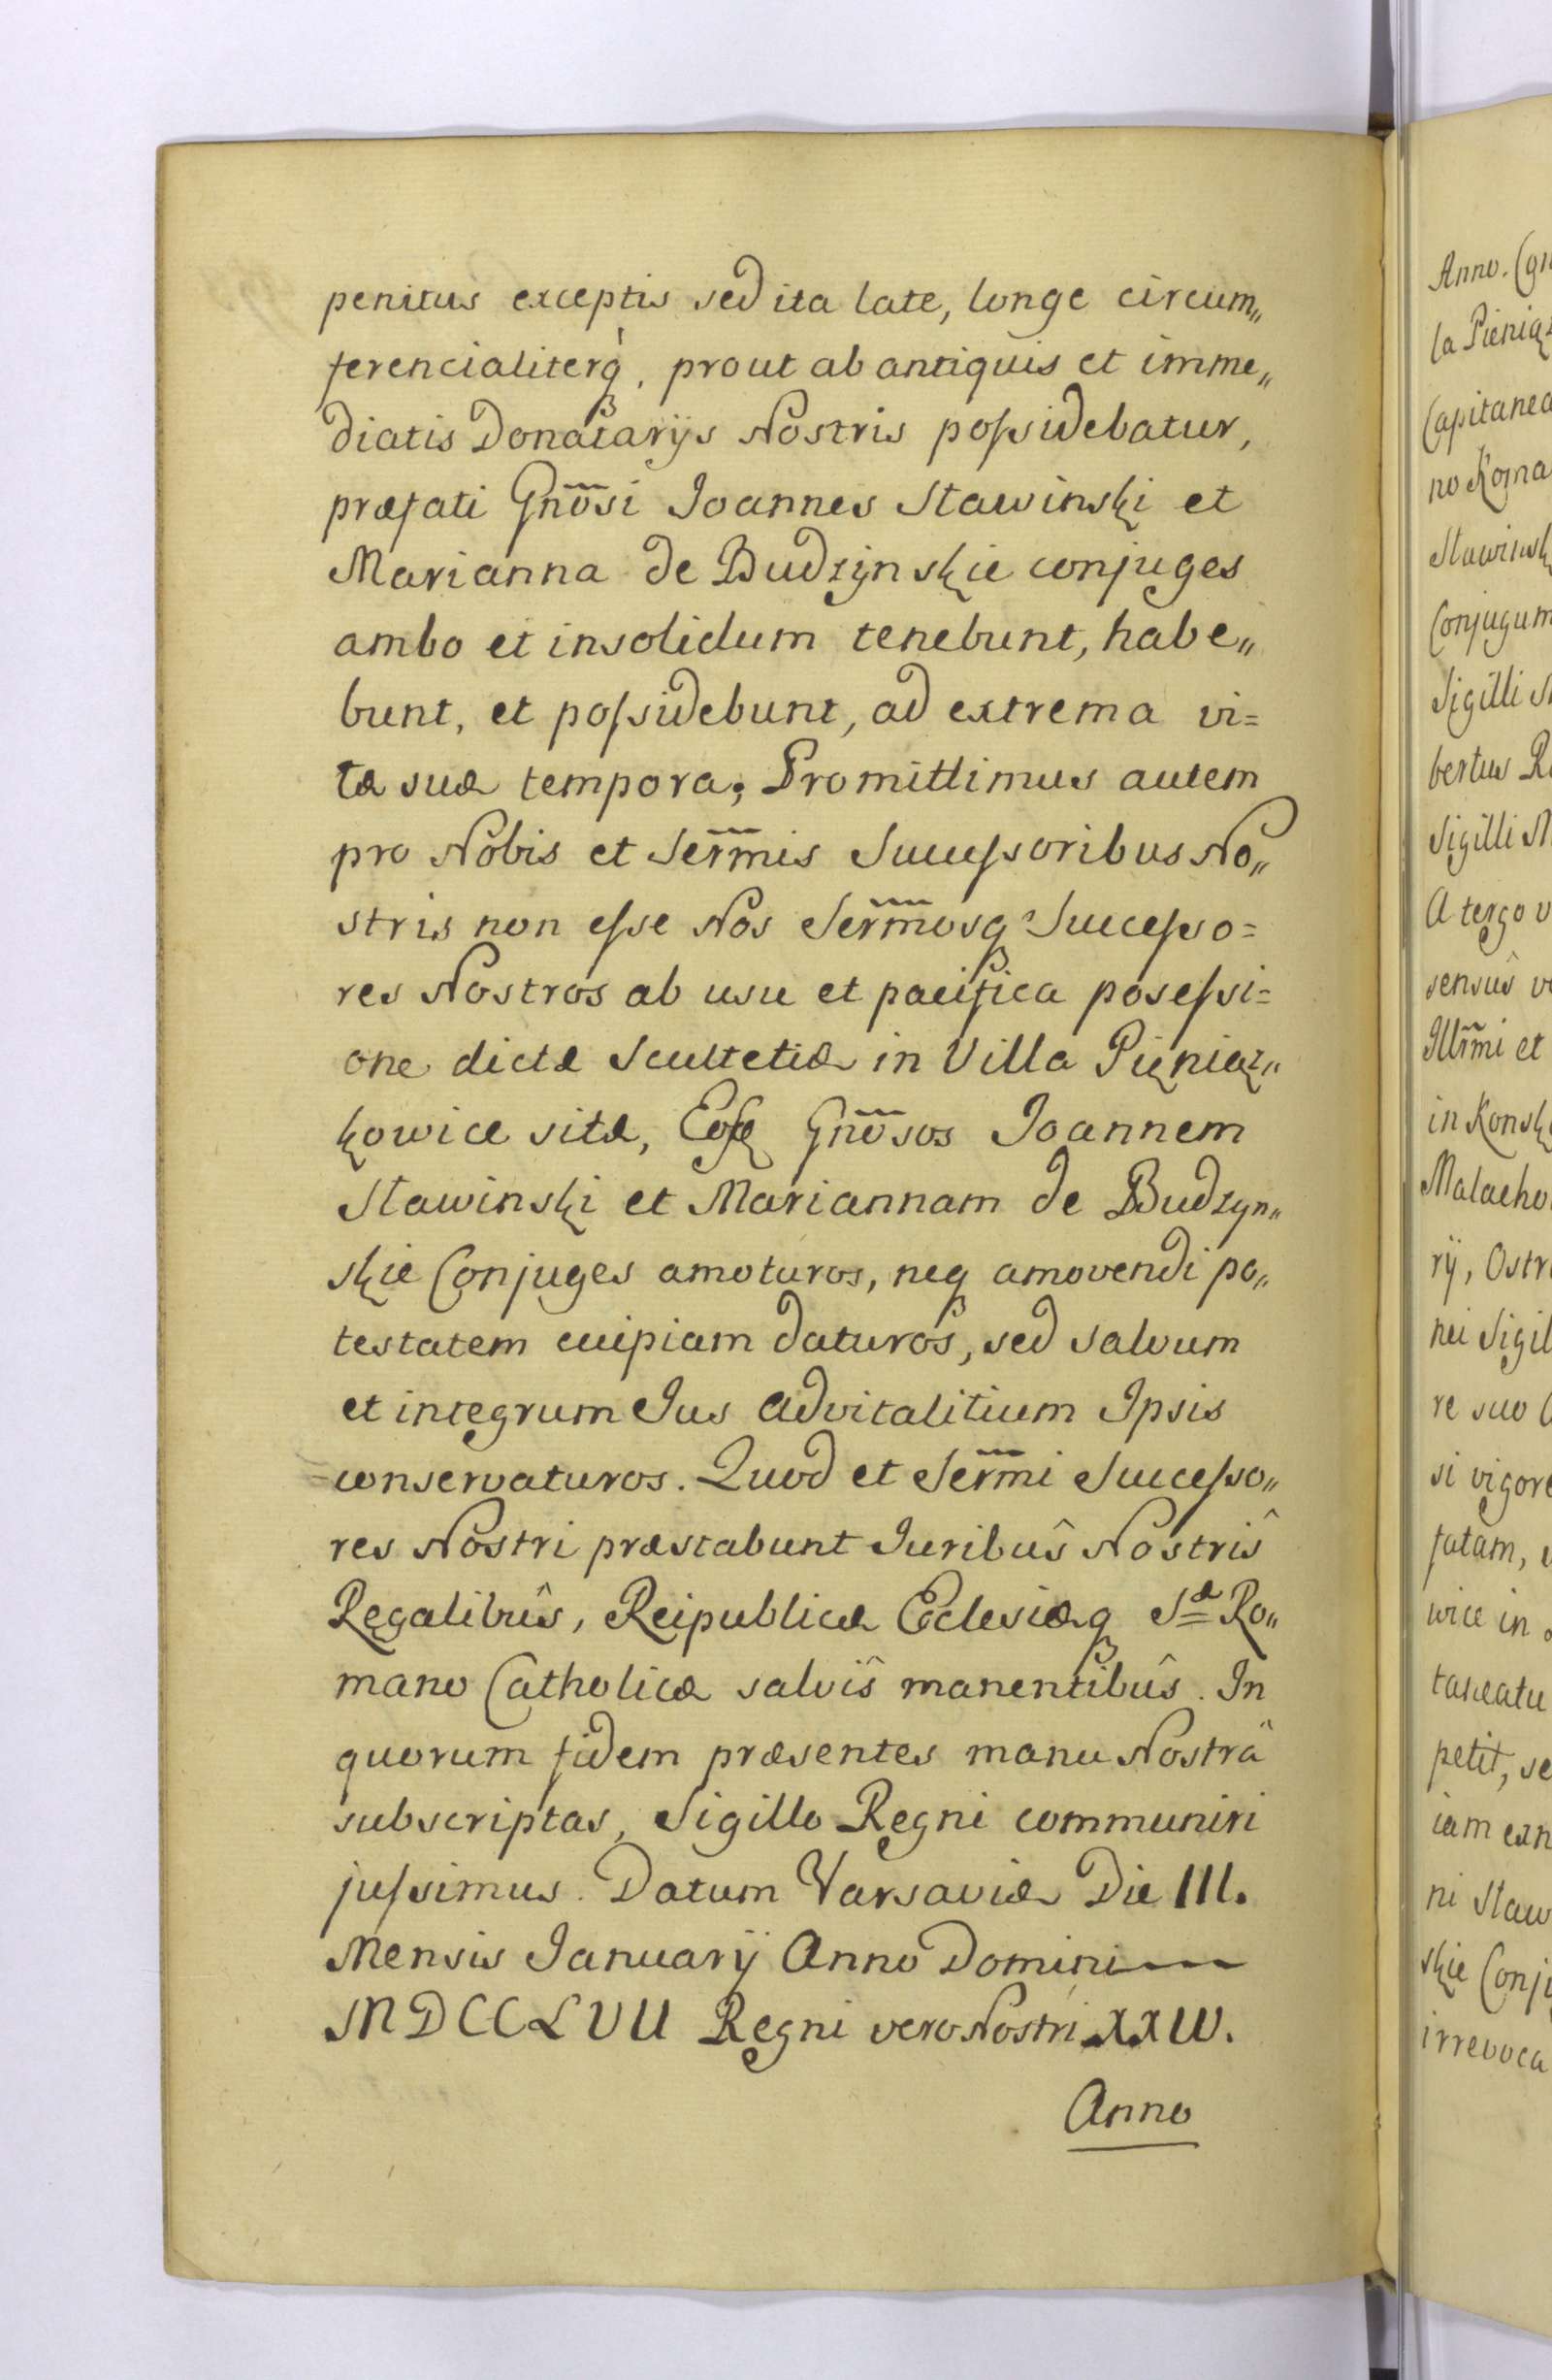 penitus exceptis sed ita late, longe circum„
ferencialiterq̀, prout ab antiquis et imme„
diatis Donatarijs Nostris poſsidebatur,
præfati Gnõsi Joannes Stawinski et
Marianna de Budzynskie conjuges
ambo et insolidum tenebunt, habe„
bunt, et poſsidebunt, ad extrema vi=
tæ suæ tempora; Promittimus autem
pro Nobis et Serm̃is Succeſsoribus No„
stris non eſse Nos Serm̃osq Succeſso=
res Nostros ab usu et pacifica poseſsi=
one dictæ Scultetiæ in Villa Pieniąz„
kowice sitæ, Gnõsos Joannem
Stawinski et Mariannam de Budzyn„
skie Conjuges amoturos, neq amovendi po„
testatem cuipiam daturos, sed salvum
et integrum Jus advitalitium Ipsis
conservaturos. Quod et Serm̃i Succeſso„
res Nostri præstabunt Juribuŝ Nostriŝ
Regalibûs, Reipublicæ Eclesiæq Sæ Ro„
mano Catholicæ salvîs manentibûs. In
quorum fidem præsentes manu Nostrâ
subscriptas, Sigillo Regni communiri
juſsimus. Datum Varsaviæ Die III.
Mensis Januarij Anno Domini
MDCCLVII Regni vero Nostri XXIV.
Anno
Anno.
la Pieniąz
Capitanea
no Roma
Stawinsk
Conjugum
Sigilli
bertus
Sigilli
A tergo
sensûs
Illrm̃i et
in Konsk
Malacho
rij, Ostr
nei Sigil
re suo
si vigore
fatam,
wice in
petit, se
iam
ni Staw
skie Conj
irrevoca